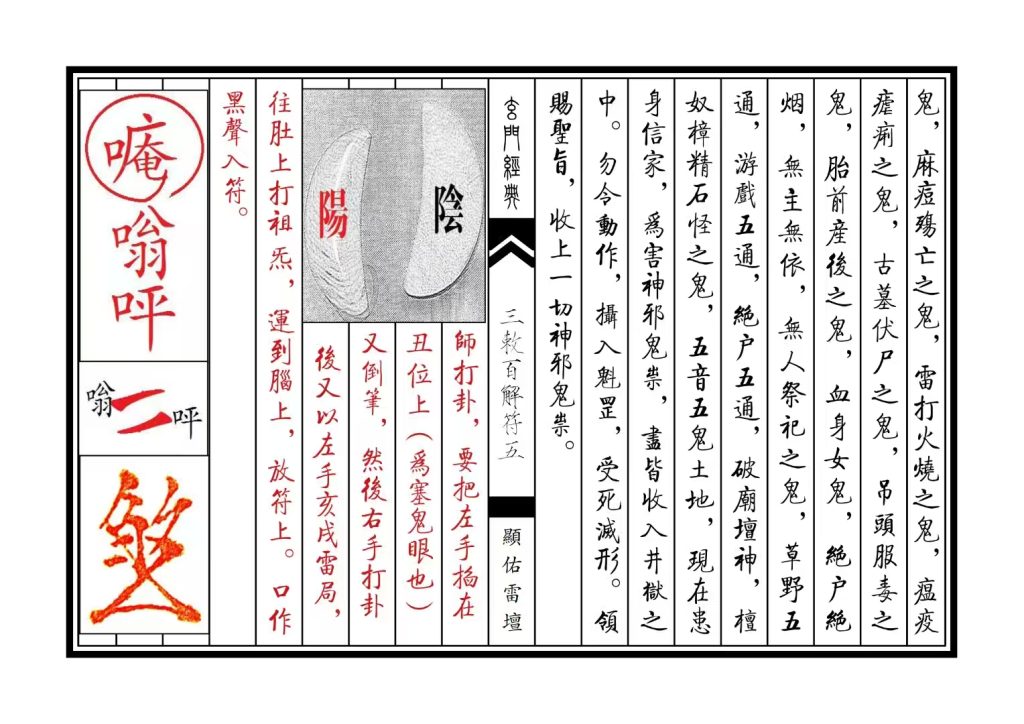 鬼，麻痘殤亡之鬼，雷打火燒之鬼，瘟疫
瘧痢之鬼，古墓伏尸之鬼，吊頭服毒之
鬼，胎前産後之鬼，血身女鬼，絶户絶
烟，無主無依，無人祭祀之鬼，草野五
通，游戲五通，絶户五通，破廟壇神，檀
奴樟精石怪之鬼，五音五鬼土地，現在患
身信家，爲害神邪鬼祟，盡皆收入井獄之
中。勿令動作，攝入魁罡，受死滅形。領
賜聖旨，收上一切神邪鬼祟。
玄門經典
三敕百解符五
顯佑雷壇
陰
陽
師打卦，要把左手掐在
丑位上（爲塞鬼眼也）
又倒筆，然後右手打卦
後又以左手亥戌雷局，
往肚上打祖炁，運到腦上，放符上。口作
黑聲入符。
唵
嗡
呼
嗡
呼